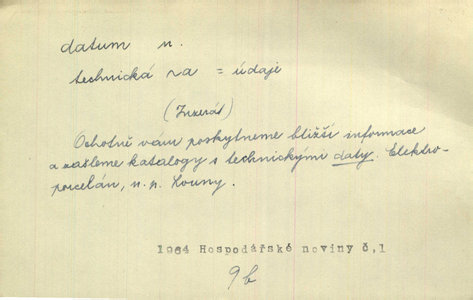 datum n.
technická ~a = údaje
(Inzerát)
Ochotně vám poskytneme bližší informace
a zašleme katalogy s technickými daty. Elektro-
porcelán, n. p. Louny.
1964 Hospodářské noviny č,1
9b